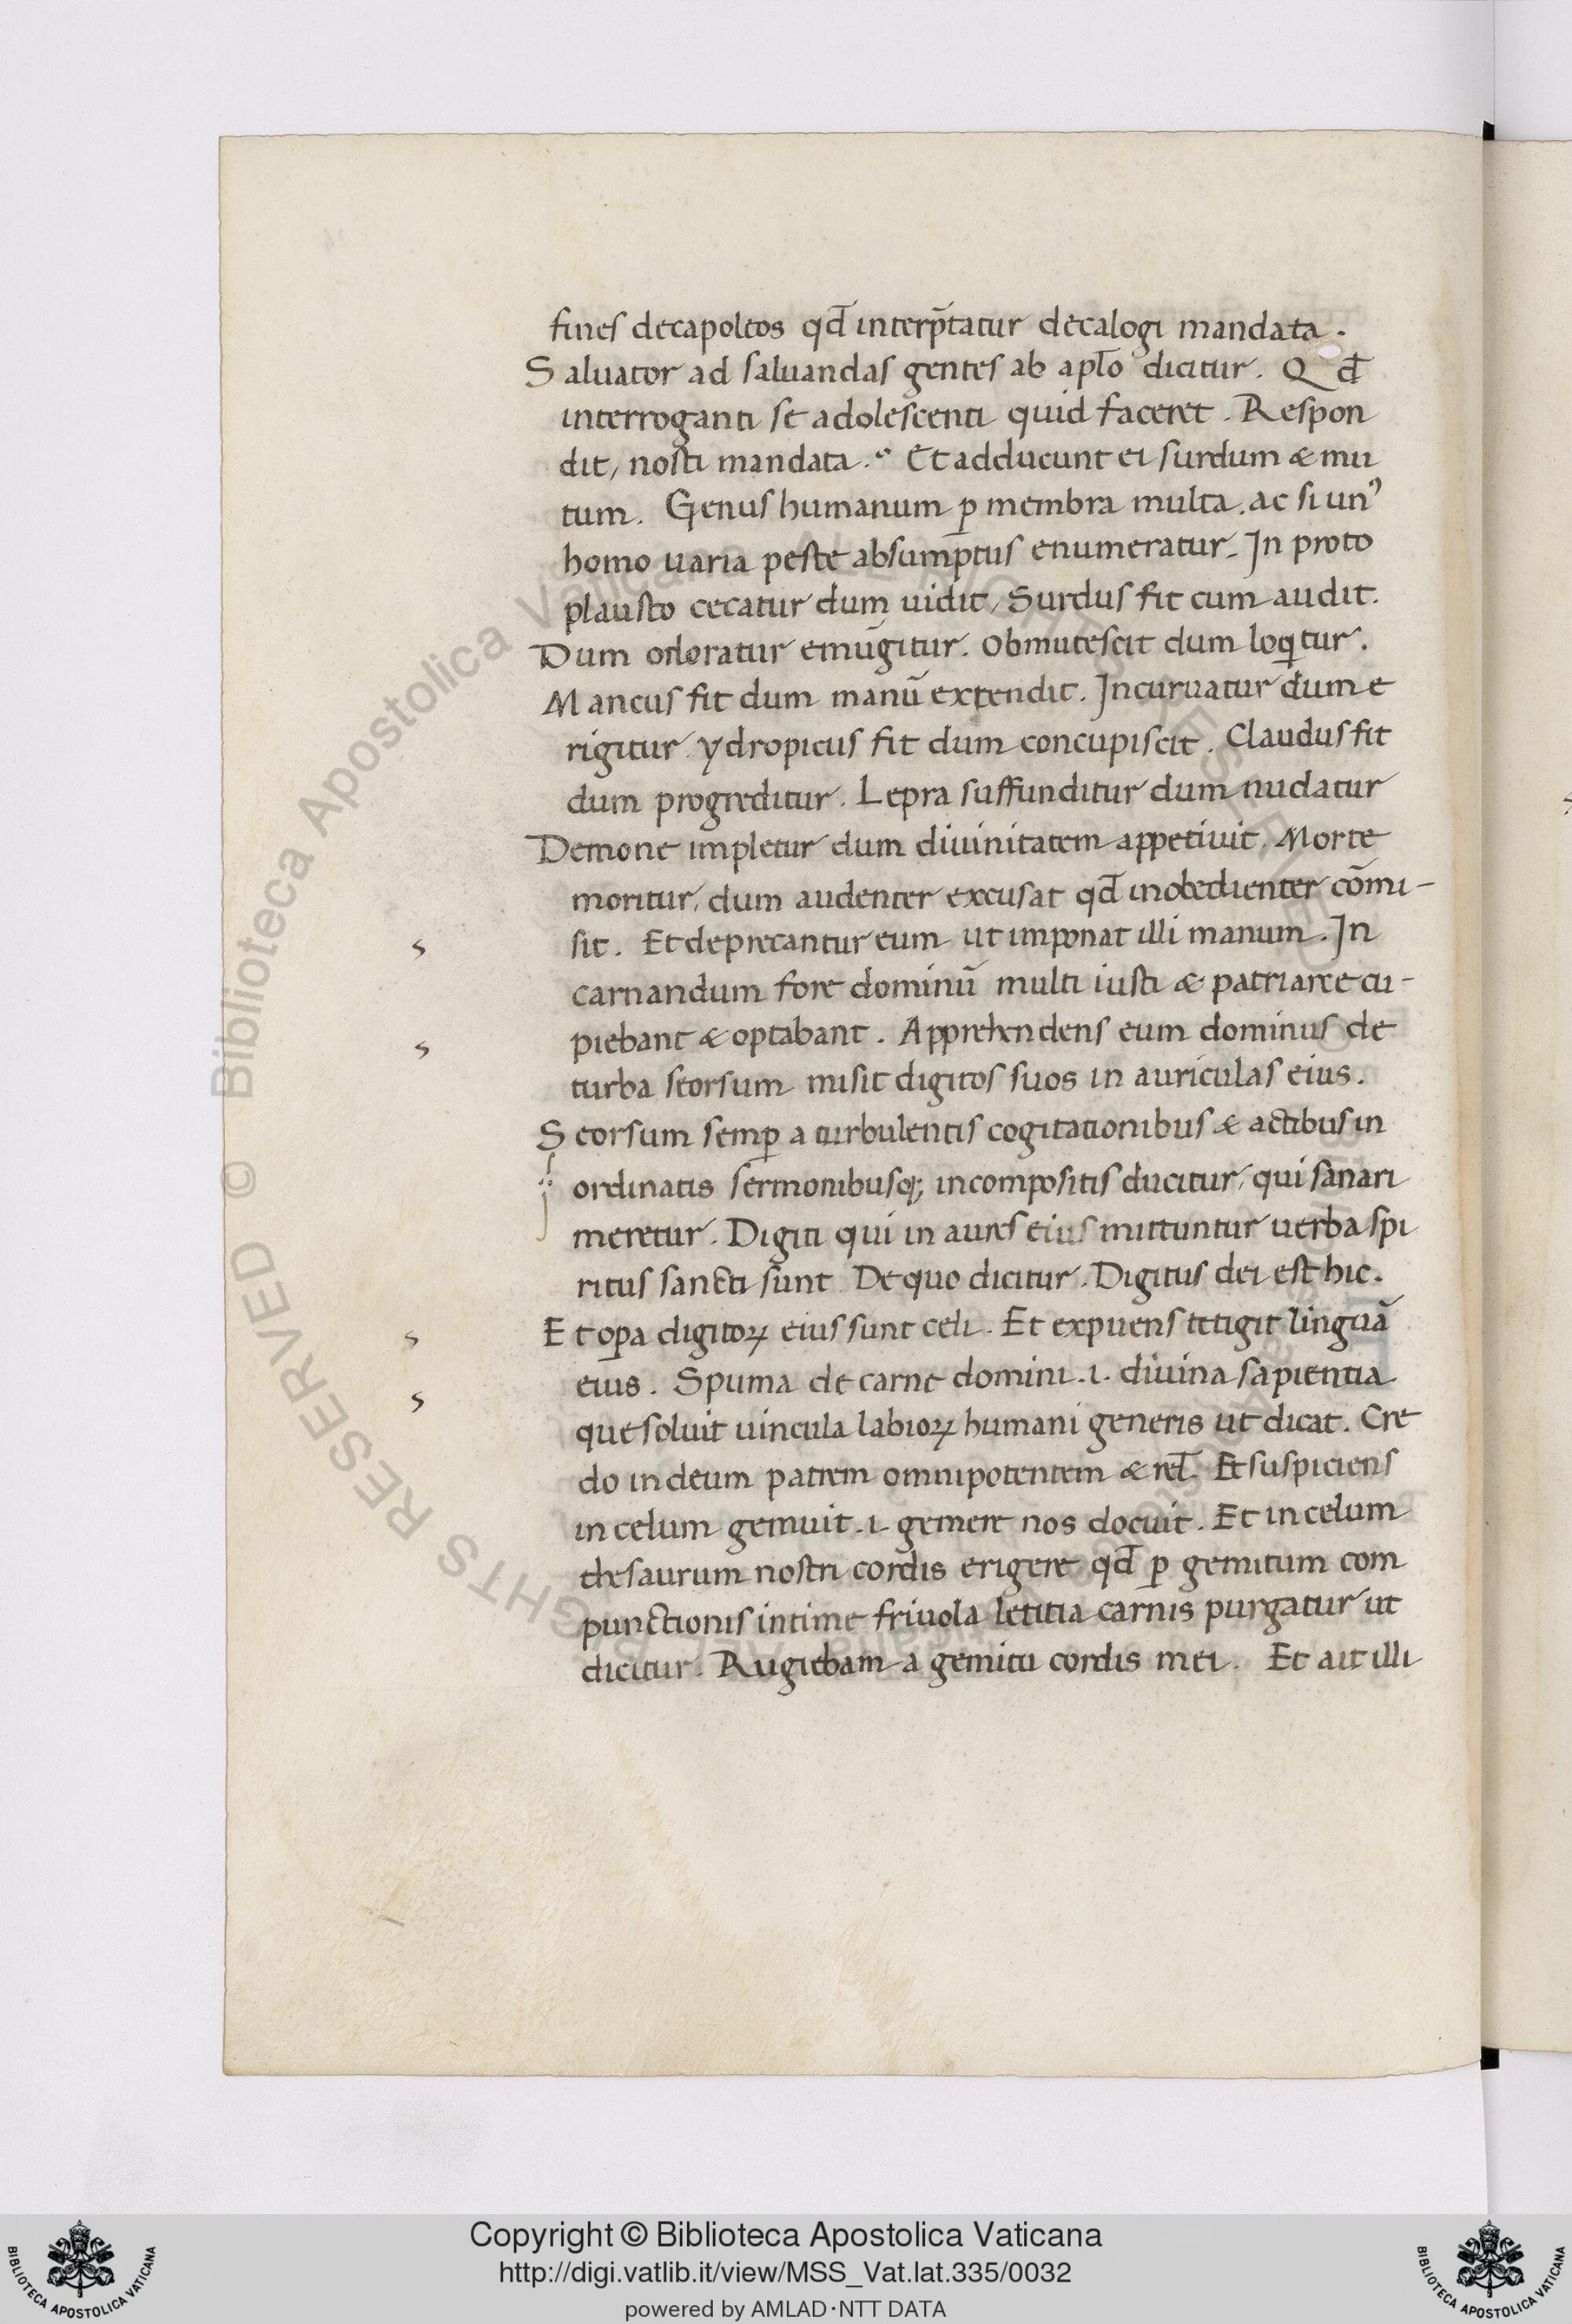 fines decapoleos qđ interp̄tatur decalogi mandata.
Saluator ad saluandas gentes ab apl̄o dicitur. Qđ
interroganti se adolescenti quid faceret. Respon
dit, nosti mandata. Et adducunt ei surdum & mu
tum. Genus humanum ꝑ membra multa. ac si unꝰ
homo uaria peste absumptus enumeratur. In proto
plausto cecatur dum uidit, Surdus fit cum audit.
Dum odoratur emūgitur. obmutescit dum loqͥtur.
Mancus fit dum manū extendit. Incuruatur dum e
rigitur. ydropicus fit dum concupiscit. Claudus fit
dum progreditur. Lepra suffunditur dum nudatur
Demone impletur dum diuinitatem appetiuit. Morte
moritur, dum audenter excusat qđ inobedienter cōmi-
sit. Et deprecantur eum ut imponat illi manum. In
carnandum fore dominū multi iusti & patriarce cu-
piebant & optabant. Apprehendens eum dominus de
turba seorsum misit digitos suos in auriculas eius.
Seorsum semꝑ a turbulentis cogitationibus & actibus in
ordinatis sermonibusq; incompositis ducitur, qui sanari
meretur. Digiti qui in aures eius mittuntur uerba spi
ritus sancti sunt De quo dicitur. Digitus dei est hic.
Et oꝑa digitoꝝ eius sunt celi. Et expuens tetigit linguā
eius. Spuma de carne domini .i. diuina sapientia
que soluit uincula labioꝝ humani generis ut dicat. Cre
do in deum patrem omnipotentem & rel̄. Et suspiciens
in celum gemuit .i. gemere nos docuit. Et in celum
thesaurum nostri cordis erigere qđ ꝑ gemitum com
punctionis intime friuola letitia carnis purgatur ut
dicitur. Rugiebam a gemitu cordis mei. Et ait illi
© Biblioteca Apostolica Vaticana ALL RIGHTS RESERVED
Copyright © Biblioteca Apostolica Vaticana
http://digi.vatlib.it/view/MSS_Vat.lat.335/0032
powered by AMLAD·NTT DATA
BIBLIOTECA APOSTOLICA VATICANA
BIBLIOTECA APOSTOLICA VATICANA